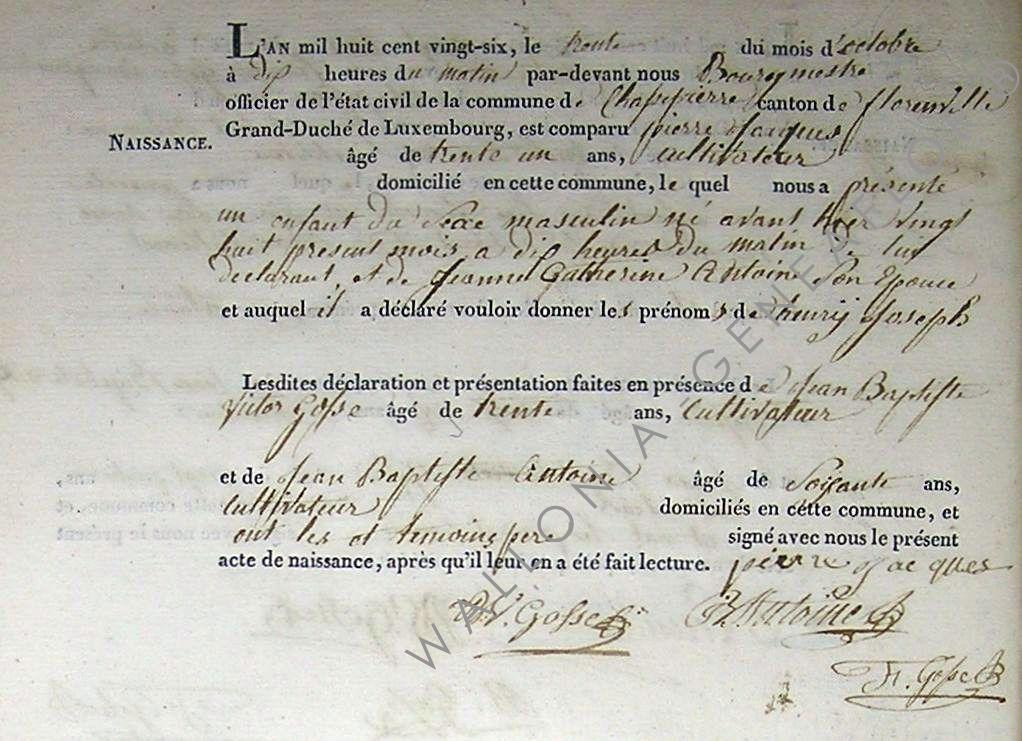 L'AN mil huit cent vingt-six, le trente du mois d'octobre
à dix heures du matin par-devant nous Bourgmestre
officier de l'état civil de la commune de Chassepierre canton de florenville
Grand-Duché de Luxembourg, est comparu pierre Jacques
NAISSANCE.
âgé de trente un ans, cultivateur
domicilié en cette commune, le quel nous a présenté
un enfant du Sexe masculin né avant hier vingt
huit present mois a dix heures du matin de lui
declarant et de Jeanne Catherine Antoine Son Epouse
et auquel il a déclaré vouloir donner les prénoms de henrij Joseph
Lesdites déclaration et présentation faites en présence de Jean Baptiste
Victor Gosse âgé de trente ans, Cultivateur
et de Jean Baptiste Antoine âgé de Soixante ans,
Cultivateur domiciliés en cette commune, et
ont les et temoins pere signé avec nous le présent
acte de naissance, après qu'il leur en a été fait lecture. pierre Jacques
Gosse Antoine
F. Gosse
WALLONIA GENEA